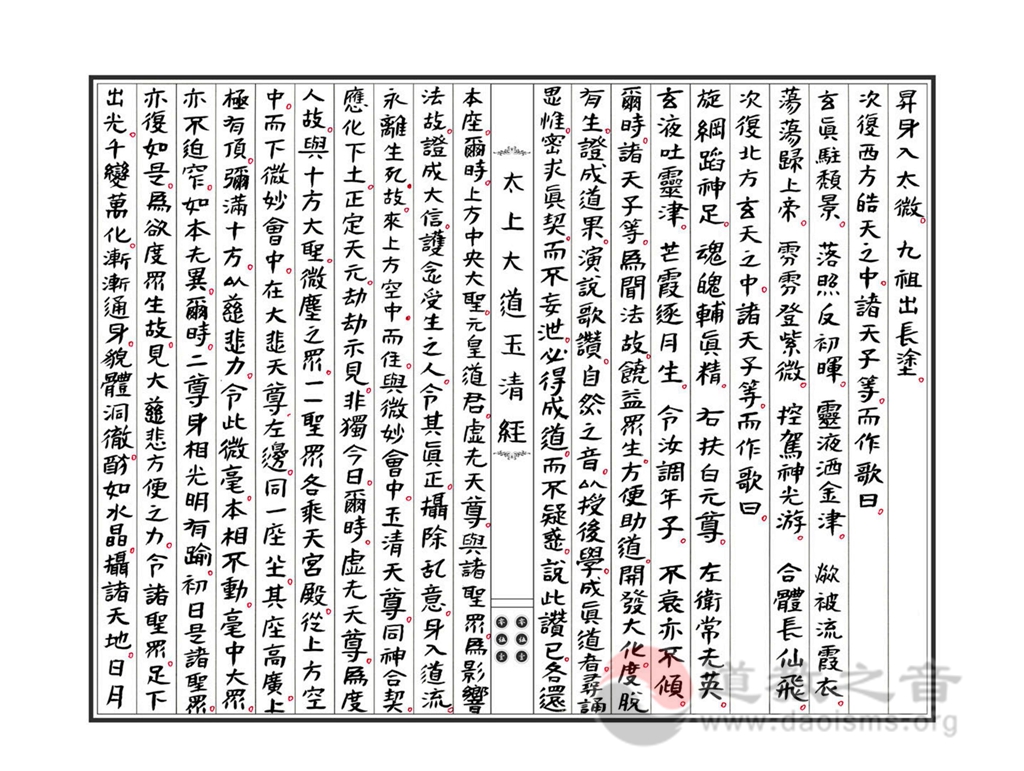 昇身入太微。九祖出長塗。
次復西方皓天之中。諸天子等。而作歌曰。
玄眞駐頹景。落照反初暉。靈液洒金津。欻被流霞衣。
蕩蕩歸上帝。雰雰登紫微。控駕神光游。合體長仙飛。
次復北方玄天之中。諸天子等。而作歌曰。
旋綱蹈神足。魂魄輔眞精。右扶白元尊。左衛常无英。
玄液吐靈津。芒霞逐月生。令汝調年子。不衰亦不傾。
爾時。諸天子等。爲聞法故。饒益眾生。方便助道。開發大化。度脫
有生。證成道果。演說歌讚。自然之音。以授後學。成眞道者。尋誦
思惟。密求眞契。而不妄泄。必得成道。而不疑惑。說此讚已。各還
太上大道玉清經
本座。爾時。上方中央大聖。元皇道君。虛无天尊。與諸聖眾。爲影響
法故。證成大信。護念受生之人。令其眞正。攝除乱意。身入道流。
永離生死。故來上方空中。而住。與微妙會中。玉清天尊。同神合契。
應化下土。正定天元。劫劫示見。非獨今日。爾時。虛无天尊。爲度
人故。與十方大聖。微塵之眾。一一聖眾。各乘天宮殿。從上方空
中。而下微妙會中。在大悲天尊左邊。同一座坐。其座高廣。上
極有頂。彌滿十方。以慈悲力。令此微毫。本相不動。毫中大眾。
亦不迫窄。如本无異。爾時。二尊身相光明。有踰。初日。是諸聖眾。
亦復如是。爲欲度眾生故。見大慈悲。方便之力。令諸聖眾。足下
出光。千變萬化。漸漸通身。貌體洞徹。酧如水晶。攝諸天地。日月
道教之音
www.daoisms.org